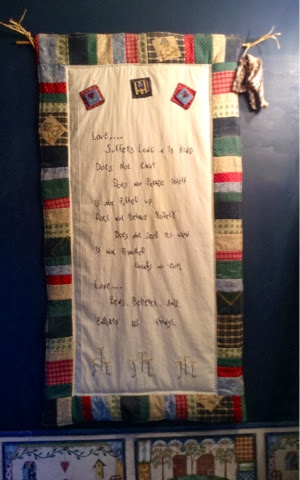 Love.....
Suffers Long + Is Kind
Does Not Envy
Does not Parade itself
Is not Puffed up
Does not Behave Rudely
Does not Seek its own
Is not Provoked
thinks no evil
Love.....
Bears, Believes, And
Endures all things.